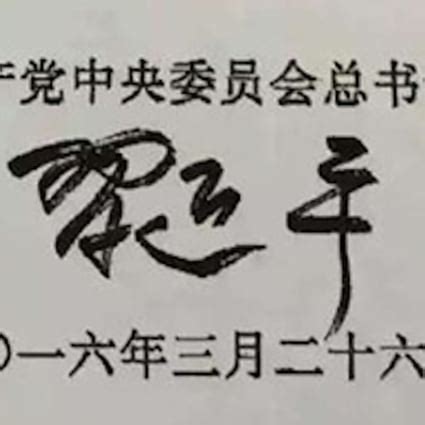 产党中央委员会总书
习近平
〇一六年三月二十六